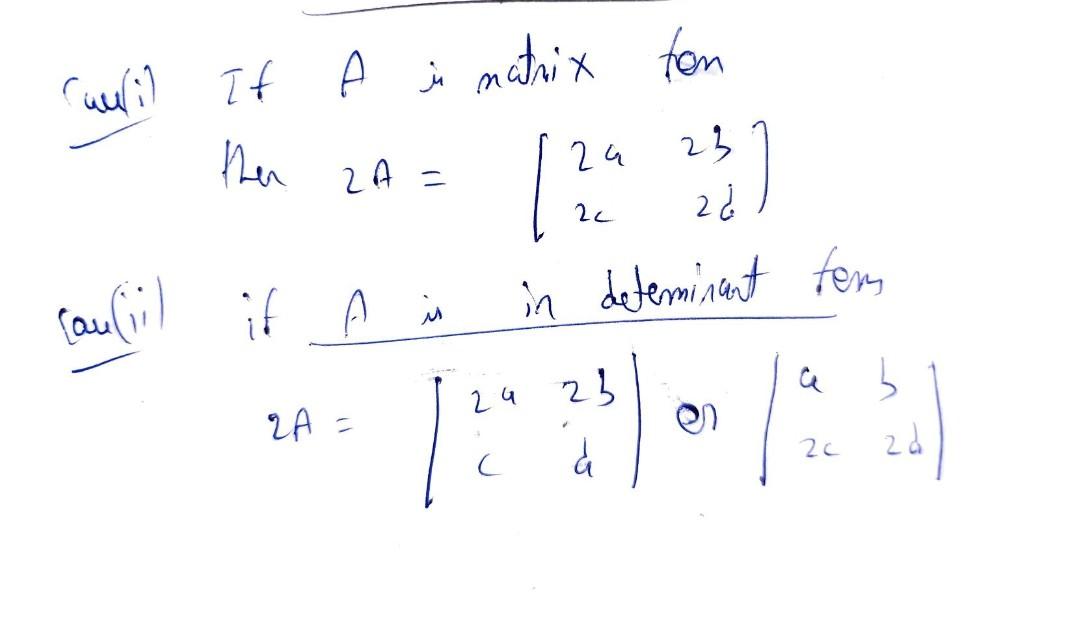 Case(i) If A is matrix form
then 2A = [ 2a 2b
2c 2d ]
Case(ii) if A is in determinant form
2A = | 2a 2b | or | a b |
| c d | | 2c 2d |